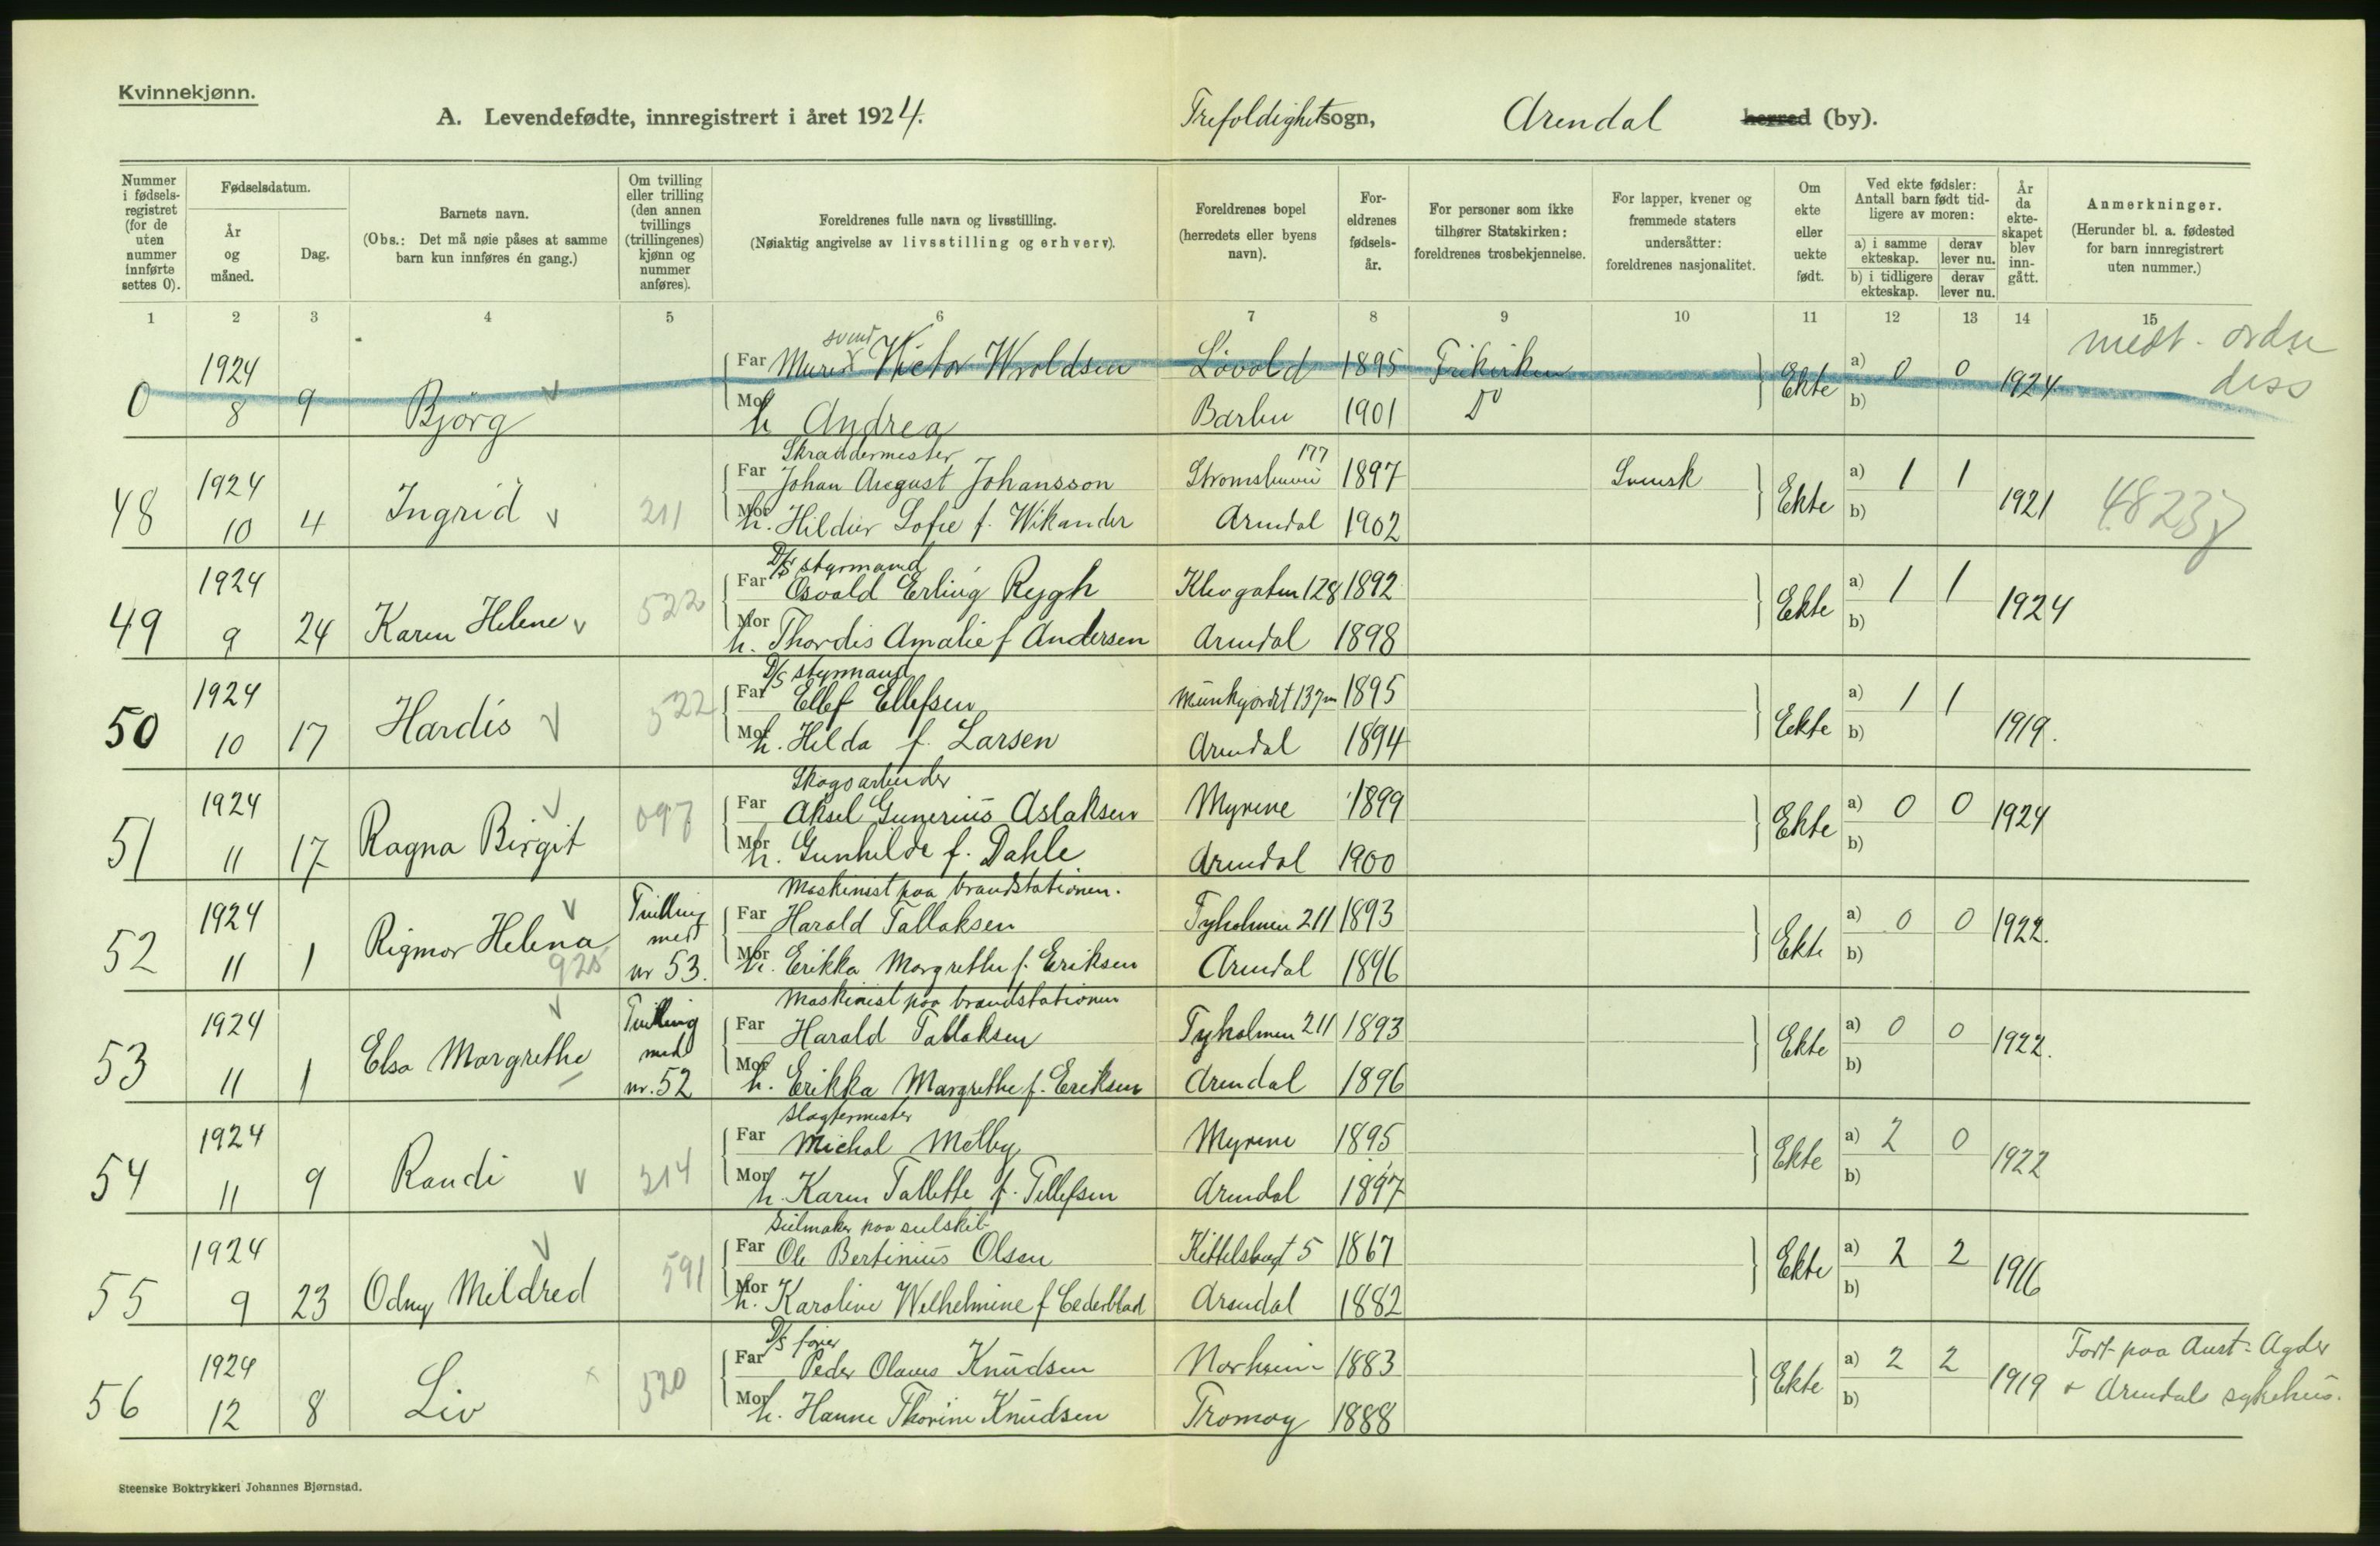 Kvinnekjønn.
A. Levendefødte, innregistrert i året 1924. Trefoldighet sogn, Arendal herred (by).
Nummer i fødsels-registret (for de uten nummer innførte settes 0).
Fødselsdatum.
År og måned.
Dag.
Barnets navn.
(Obs.: Det må nøie påses at samme barn kun innføres én gang.)
Om tvilling eller trilling (den annen tvillings (trillingenes) kjønn og nummer anføres).
Foreldrenes fulle navn og livsstilling.
(Nøiaktig angivelse av livsstilling og erhverv).
Foreldrenes bopel (herredets eller byens navn).
For-eldrenes fødsels-år.
For personer som ikke tilhører Statskirken: foreldrenes trosbekjennelse.
For lapper, kvener og fremmede staters undersåtter: foreldrenes nasjonalitet.
Om ekte eller uekte født.
Ved ekte fødsler: Antall barn født tid-ligere av moren:
a) i samme ekteskap.
derav lever nu.
b) i tidligere ekteskap.
derav lever nu.
År da ekte-skapet blev inn-gått.
Anmerkninger.
(Herunder bl. a. fødested for barn innregistrert uten nummer.)
1 2 3 4 5 6 7 8 9 10 11 12 13 14 15
svend
0 1924 8 9 Bjørg Far Murer Victor Wroldsen Løvold 1895 Frikirken Ekte a) 0 0 1924 medt. ordre diss
Mor h Andrea Barbu 1901 Do b)
Skraddermester
48 1924 10 4 Ingrid 211 Far Johan August Johansson 177 1897 Svensk Ekte a) 1 1 1921 48237
Mor h. Hildur Sofie f. Wikander Arendal 1902 b)
D/S styrmand
49 1924 9 24 Karen Helene 522 Far Osvald Erling Rygh Klevgaten 128 1892 Ekte a) 1 1 1924
Mor h. Thordis Amalie f Andersen Arendal 1898 b)
D/S styrmand
50 1924 10 17 Hardis 522 Far Ellef Ellefsen 1895 Ekte a) 1 1 1919.
Mor h. Hilda f. Larsen Arendal 1894 b)
Skogsarbeider
51 1924 11 17 Ragna Birgit 097 Far Aksel Gunerius Aslaksen Myrene 1899 Ekte a) 0 0 1924
Mor h. Gunhilde f. Dahle Arendal 1900 b)
Maskinist paa brandstationen.
52 1924 11 1 Rigmor Helena 925 Tvilling med nr 53. Far Harald Tallaksen Tyholmen 211 1893 Ekte a) 0 0 1922.
Mor h. Erikka Margrethe f. Eriksen Arendal 1896 b)
Maskinist paa brandstationen
53 1924 11 1 Elsa Margrethe Tvilling med nr. 52 Far Harald Tallaksen Tyholmen 211 1893 Ekte a) 0 0 1922.
Mor h. Erikka Margrethe f. Eriksen Arendal 1896 b)
Slagtermester
54 1924 11 9 Randi 314 Far Michal Melby Myrene 1895 Ekte a) 2 0 1922
Mor h. Karen Tallette f. Tellefsen Arendal 1897 b)
Seilmaker paa seilskib
55 1924 9 23 Odny Mildred 591 Far Ole Bertinius Olsen Kittelsbugt 5 1867 Ekte a) 2 2 1916
Mor h. Karoline Wilhelmine f Cederblad Arendal 1882 b)
D/S fører
56 1924 12 8 Liv 520 Far Peder Olaves Knudsen 1883 Ekte a) 2 2 1919 Født paa Aust-Agder & Arendals sykehus.
Mor h. Hanne Thorine Knudsen Tromøy 1888 b)
Steenske Boktrykkeri Johannes Bjørnstad.